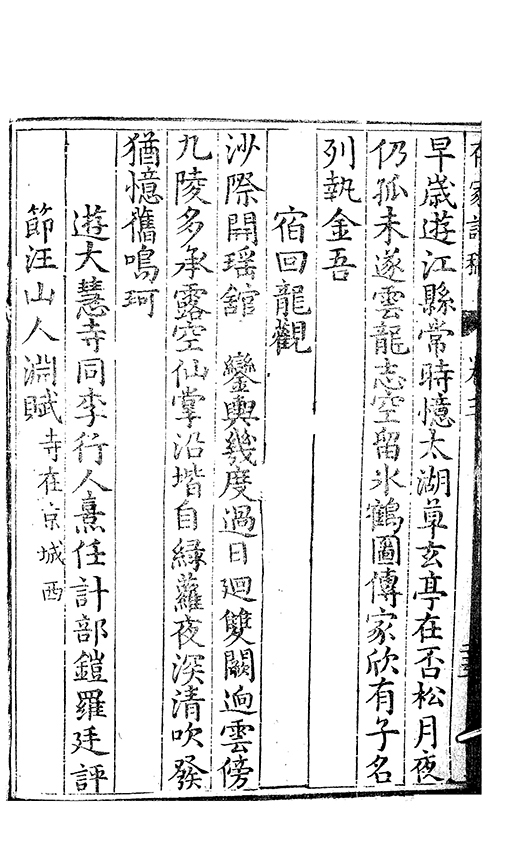 早歲遊江縣常時憶太湖草玄亭在否松月夜
仍孤未遂雲龍志空留氷鶴圖傳家欣有子名
列執金吾
宿回龍觀
沙際開瑶舘鑾輿幾度過日迴雙闕逈雲傍
九陵多承露空仙掌沿堦自緑蘿夜深清吹發
猶憶舊鳴珂
遊大慧寺同李行人熹任計部鎧羅廷評
節汪山人淵賦寺在京城西